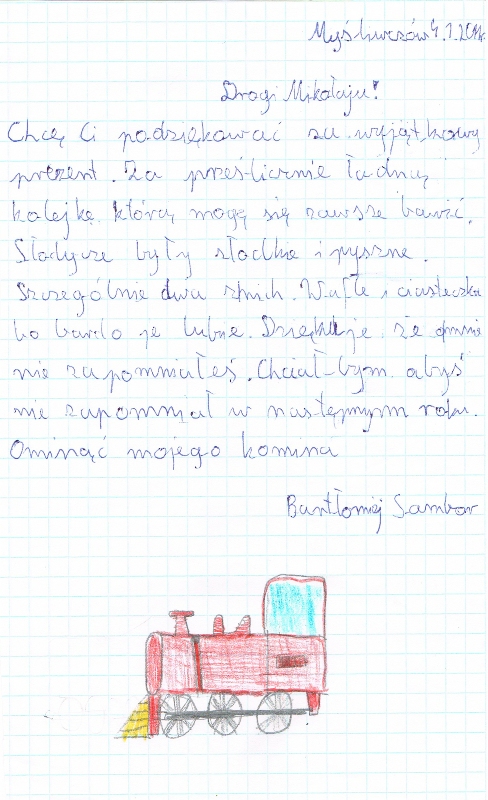 Myśliwczów 4.1.2014r.
Drogi Mikołaju!
Chcę Ci podziękować za wyjątkowy
prezent. Za prześlicznie ładną
kolejkę którą mogę się zawsze bawić.
Słodycze były słodkie i pyszne.
Szczególnie dwa znich. Wafle i ciasteczka
bo bardo je lubie. Dziękuje że omnie
nie zapomniałeś. Chciał-bym abyś
nie zapomniał w następnym roku.
Ominąć mojego komina
Bartłomiej Sambor